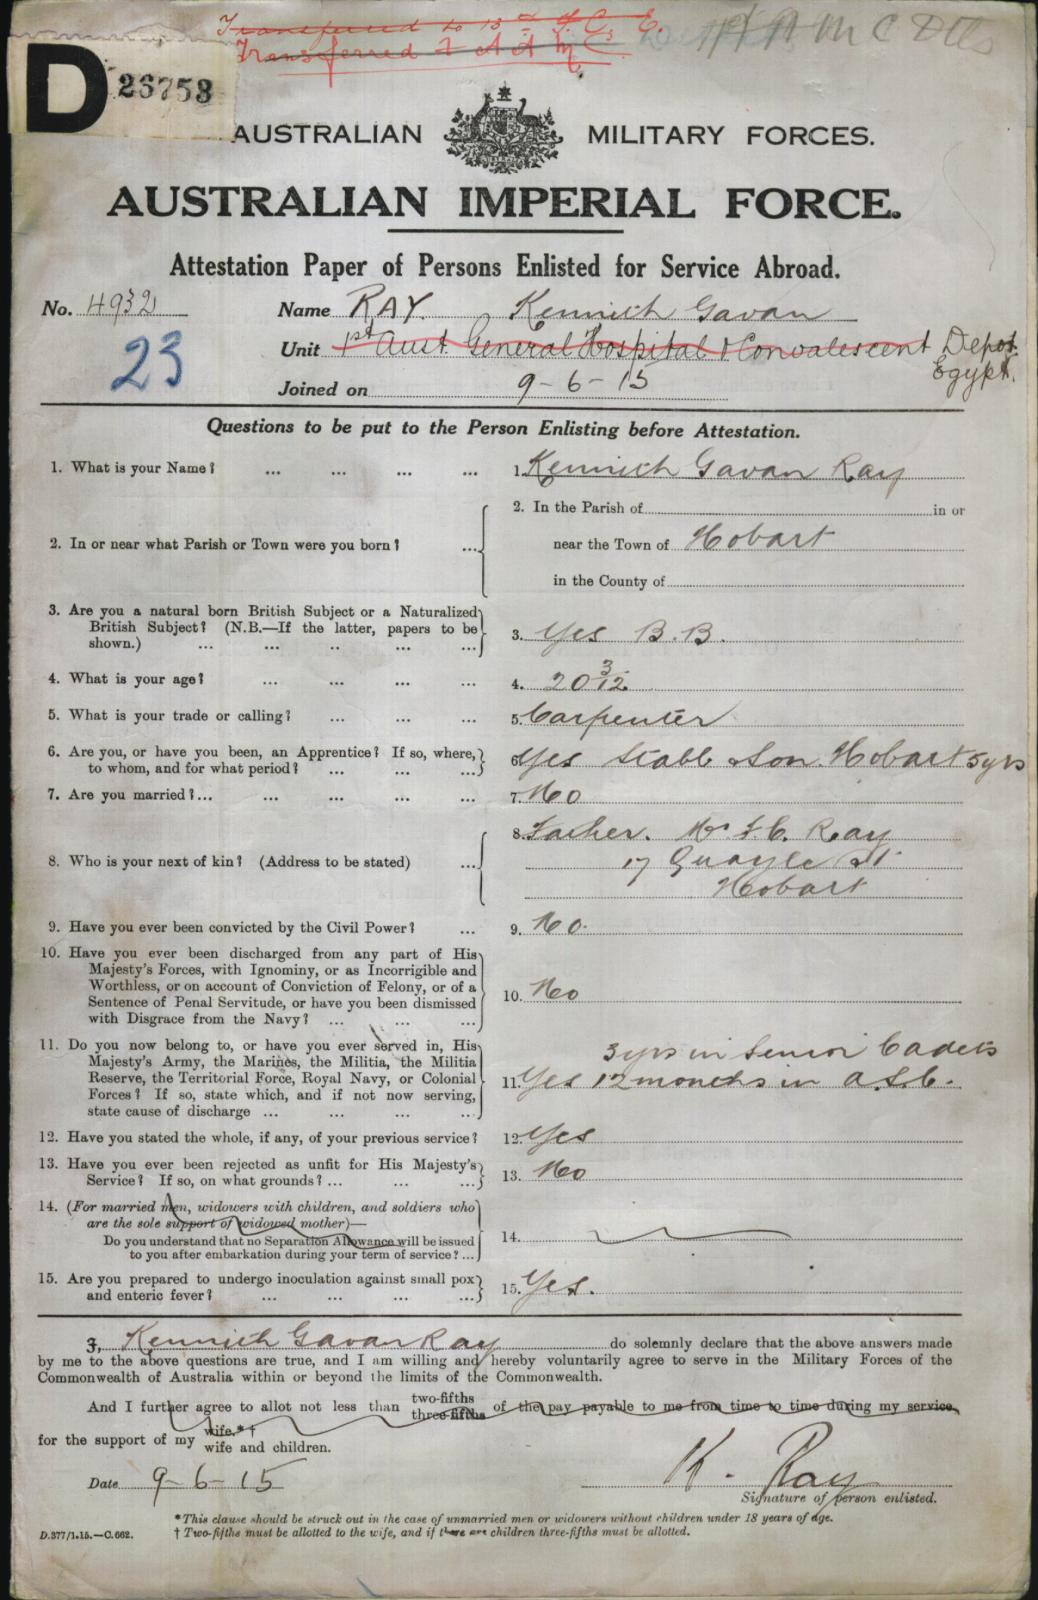 Transferred to 13th F. C. E.
Transferred A A M C.
A A M C Dtls
D 26753
AUSTRALIAN MILITARY FORCES.
AUSTRALIAN IMPERIAL FORCE.
Attestation Paper of Persons Enlisted for Service Abroad.
No. 4932 Name RAY. Kennith Gavan
23
Unit 1st Aust. General Hospital & Convalescent Depot. Egypt.
Joined on 9-6-15
Questions to be put to the Person Enlisting before Attestation.
1. What is your Name? ... ... ... ... 1. Kennith Gavan Ray
2. In the Parish of in or
2. In or near what Parish or Town were you born? ... near the Town of Hobart
in the County of
3. Are you a natural born British Subject or a Naturalized
British Subject? (N.B.—If the latter, papers to be
shown.) ... ... .. ... ... 3. Yes B.B.
4. What is your age? ... ... ... ... 4. 20 3/12
5. What is your trade or calling? ... ... ... 5. Carpenter
6. Are you, or have you been, an Apprentice? If so, where,
to whom, and for what period? ... ... ... 6. Yes Stabb & Son. Hobart 5yrs
7. Are you married?... ... ... ... ... 7. No
8. Father. Mr F.C. Ray
8. Who is your next of kin? (Address to be stated) ... 17 Quayle St
Hobart
9. Have you ever been convicted by the Civil Power? ... 9. No.
10. Have you ever been discharged from any part of His
Majesty's Forces, with Ignominy, or as Incorrigible and
Worthless, or on account of Conviction of Felony, or of a
Sentence of Penal Servitude, or have you been dismissed
with Disgrace from the Navy? ... ... ... 10. No
11. Do you now belong to, or have you ever served in, His
Majesty's Army, the Marines, the Militia, the Militia
Reserve, the Territorial Force, Royal Navy, or Colonial
Forces? If so, state which, and if not now serving,
state cause of discharge ... ... ... ...
3yrs in Senior Cadets
11. Yes 12 months in A.S.C.
12. Have you stated the whole, if any, of your previous service? 12. Yes
13. Have you ever been rejected as unfit for His Majesty's
Service? If so, on what grounds? ... ... ... 13. No
14. (For married men, widowers with children, and soldiers who
are the sole support of widowed mother)—
Do you understand that no Separation Allowance will be issued
to you after embarkation during your term of service? ... 14.
15. Are you prepared to undergo inoculation against small pox
and enteric fever? ... ... ... ... 15. Yes.
I, Kennith Gavan Ray do solemnly declare that the above answers made
by me to the above questions are true, and I am willing and hereby voluntarily agree to serve in the Military Forces of the
Commonwealth of Australia within or beyond the limits of the Commonwealth.
And I further agree to allot not less than two-fifths three-fifths of the pay payable to me from time to time during my service
for the support of my wife.*† wife and children.
Date 9-6-15 K. Ray
Signature of person enlisted.
* This clause should be struck out in the case of unmarried men or widowers without children under 18 years of age.
D.377/1.15.—C.662. † Two-fifths must be allotted to the wife, and if there are children three-fifths must be allotted.